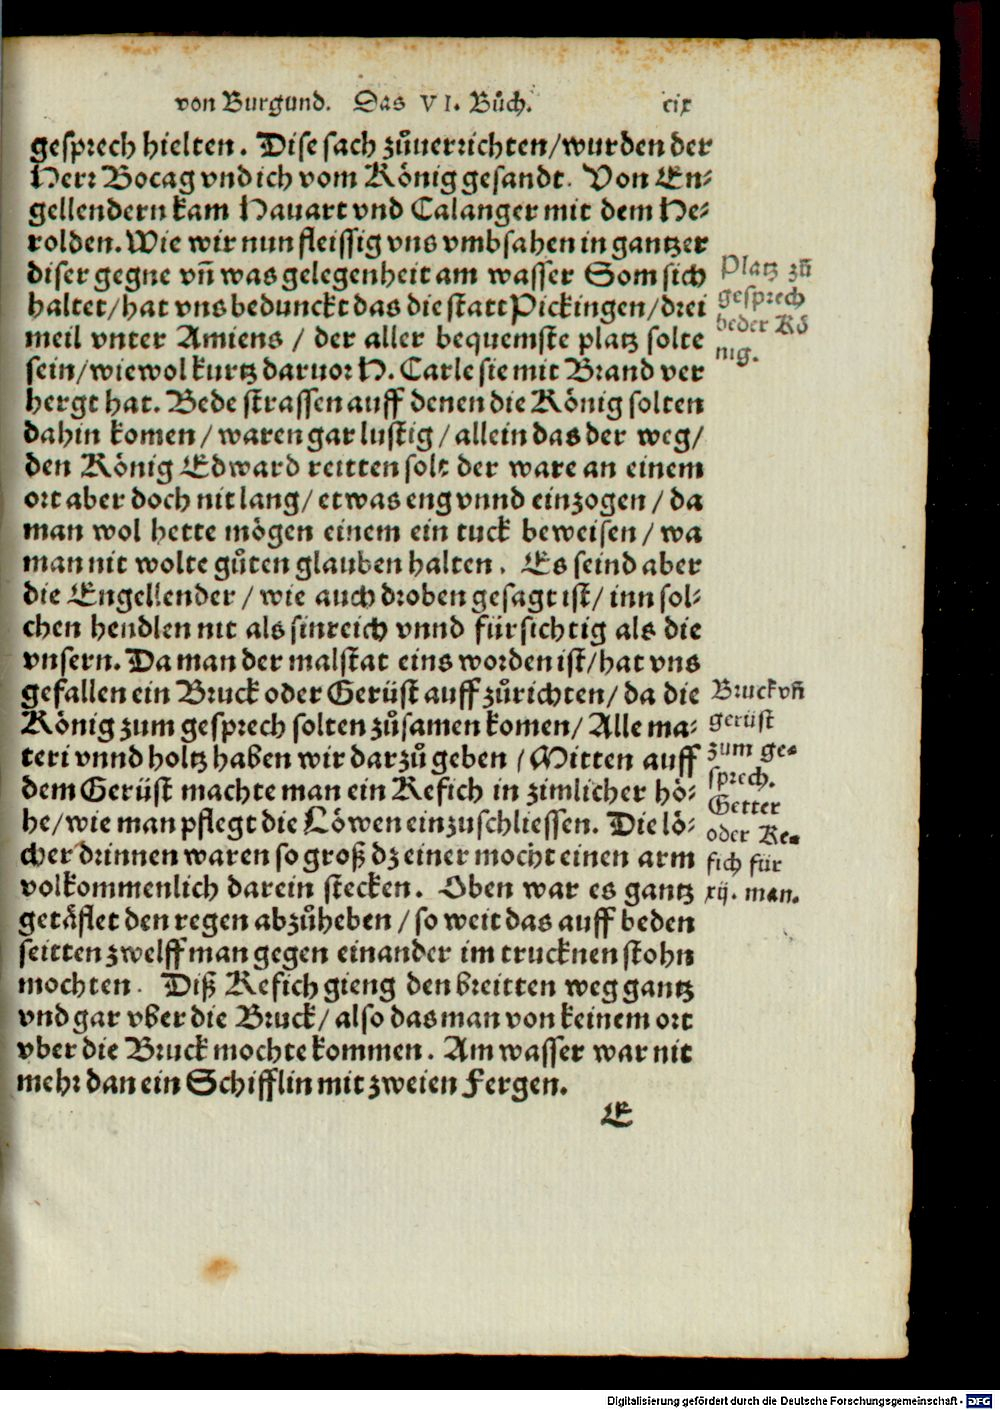 von Burgund. Das VI. Bůch. cix
gesprech hielten. Dise sach zůuerrichten/wurden der
Herr Bocag vnd ich vom König gesandt. Von En-
gellendern kam Hauart vnd Calanger mit dem He-
rolden. Wie wir nun fleissig vns vmbsahen in gantzer
diser gegne vñ was gelegenheit am wasser Som sich
haltet/hat vns bedunckt das die statt Pickingen/drei
meil vnter Amiens / der aller bequemste platz solte
sein/wiewol kurtz daruor H. Carle sie mit Brand ver
hergt hat. Bede strassen auff denen die König solten
dahin komen/waren gar lustig/allein das der weg/
den König Edward reitten solt der ware an einem
ort aber doch nit lang/etwas eng vnnd einzogen/da
man wol hette mögen einem ein tuck beweisen/wa
man nit wolte gůten glauben halten. Es seind aber
die Engellender/wie auch droben gesagt ist/inn sol-
chen hendlen nit als sinreich vnnd fürsichtig als die
vnsern. Da man der malstat eins worden ist/hat vns
gefallen ein Bruck oder Gerüst auff zůrichten/da die
König zum gesprech solten zůsamen komen/Alle ma-
teri vnnd holtz haben wir darzů geben/Mitten auff
dem Gerüst machte man ein Kefich in zimlicher hö-
he/wie man pflegt die Löwen einzuschliessen. Die lö-
cher drinnen waren so groß dz einer mocht einen arm
volkommenlich darein stecken. Oben war es gantz
getäflet den regen abzůheben/so weit das auff beden
seitten zwelff man gegen einander im trucknen stohn
mochten. Diß Kefich gieng den breitten weg gantz
vnd gar vber die Bruck/also das man von keinem ort
vber die Bruck mochte kommen. Am wasser war nit
mehr dan ein Schifflin mit zweien Fergen.
E
Platz zů
gesprech
beder Kö
nig.
Bruck vñ
gerüst
zum ge-
sprech.
Getter
oder Ke-
fich für
xij. man.
Digitalisierung gefördert durch die Deutsche Forschungsgemeinschaft - DFG